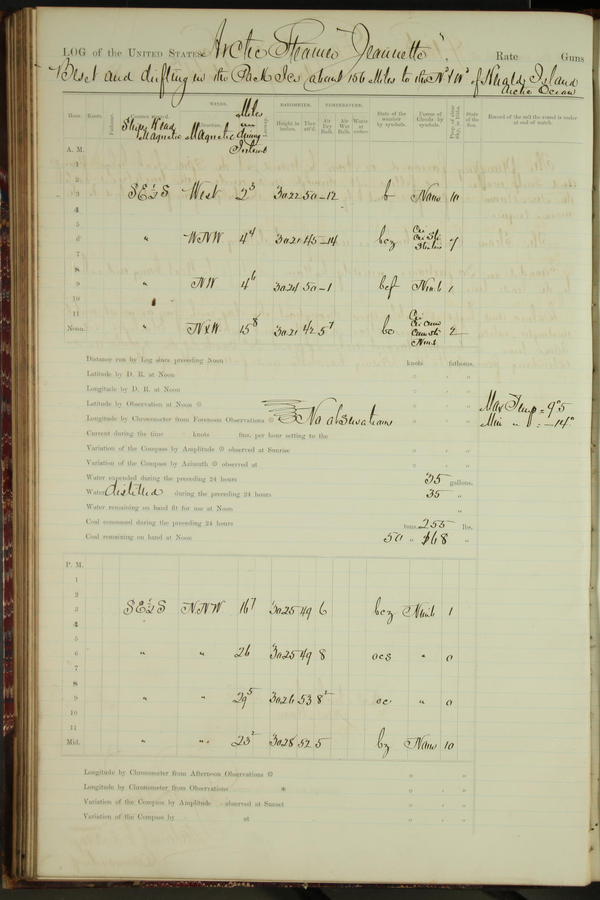 LOG of the UNITED STATES Arctic Steamer "Jeannette". Rate Guns
Beset and drifting in the Pack Ice about 156 Miles to the of Herald Island
Arctic Ocean
Hour. Knots. WINDS. BAROMETER. TEMPERATURE.
Ships Head Magnetic Magnetic Miles during Height in inches. Ther. att'd. Air Dry Bulb. Air Wet Bulb. Water at surface. State of the weather by symbols. Forms of Clouds by symbols. State of the Sea. Record of the sail the vessel is under at end of watch.
A. M.
1
2
3 S E ½ S West 2 3 30 22 50 -12 b None 10
4
5
6 " WNW 4 4 30 21 45 -14 bcz 7
7
8
9 " NW 4 6 30 24 50 -1 bcf Nimb 1
10
11
Noon. " NxW 15 8 30 21 42 5 7 bc 2
Distance run by Log since preceding Noon knots fathoms.
Latitude by D. R. at Noon ° ' "
Longitude by D. R. at Noon ° ' "
Latitude by Observation at Noon ° ' " Max Temp = 9°5
Longitude by Chronometer from Forenoon Observations No observations Min " = -14°
Current during the time knots fms. per hour setting to the
Variation of the Compass by Amplitude observed at Sunrise ° ' "
Variation of the Compass by Azimuth observed at ° ' "
Water expended during the preceding 24 hours 35 gallons.
Water distilled during the preceding 24 hours 35 "
Water remaining on hand fit for use at Noon "
Coal consumed during the preceding 24 hours tons, 255 lbs.
Coal remaining on hand at Noon 50 " 168 "
P. M.
1
2
3 S E ½ S N.N.W 16 7 30 25 49 6 bcz Nimb 1
4
5
6 " " 26 30 25 49 8 ocs " 0
7
8
9 " " 29 5 30 26 53 8 2 oc " 0
10
11
Mid. " " 23 2 30 28 52 5 bz None 10
Longitude by Chronometer from Afternoon Observations ° ' "
Longitude by Chronometer from Observations * ° ' "
Variation of the Compass by Amplitude observed at Sunset ° ' "
Variation of the Compass by at ° ' "